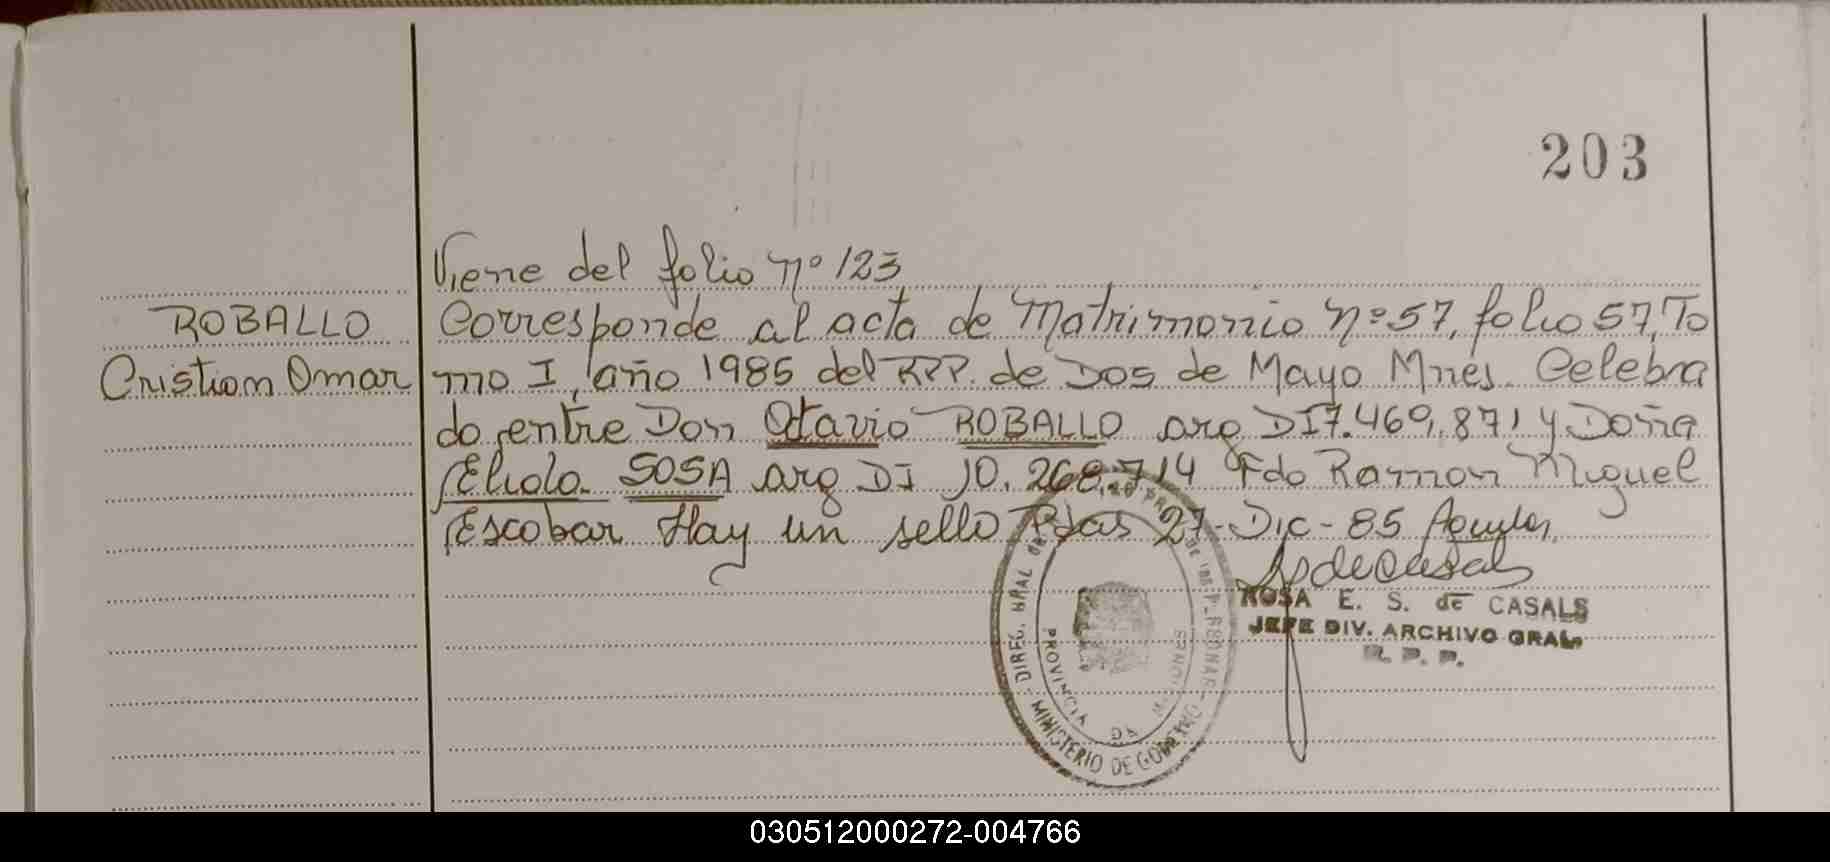 203
Viene del folio nº 123
ROBALLO
Cristian Omar
Corresponde al acta de Matrimonio nº 57, folio 57, To
mo I, año 1985 del RPP. de Dos de Mayo Mnes. Celebra
do entre Don Octavio ROBALLO arg DI 7.469.871 y Doña
Elida SOSA arg DI 10.268.714 Fdo Ramon Miguel
Escobar Hay un sello Pdas 27-Dic-85
ROSA E. S. de CASALS
JEFE DIV. ARCHIVO GRAL.
R. P. P.
DIREC. GRAL DE
MINISTERIO DE GOBIERNO
PROVINCIA DE MISIONES
030512000272-004766